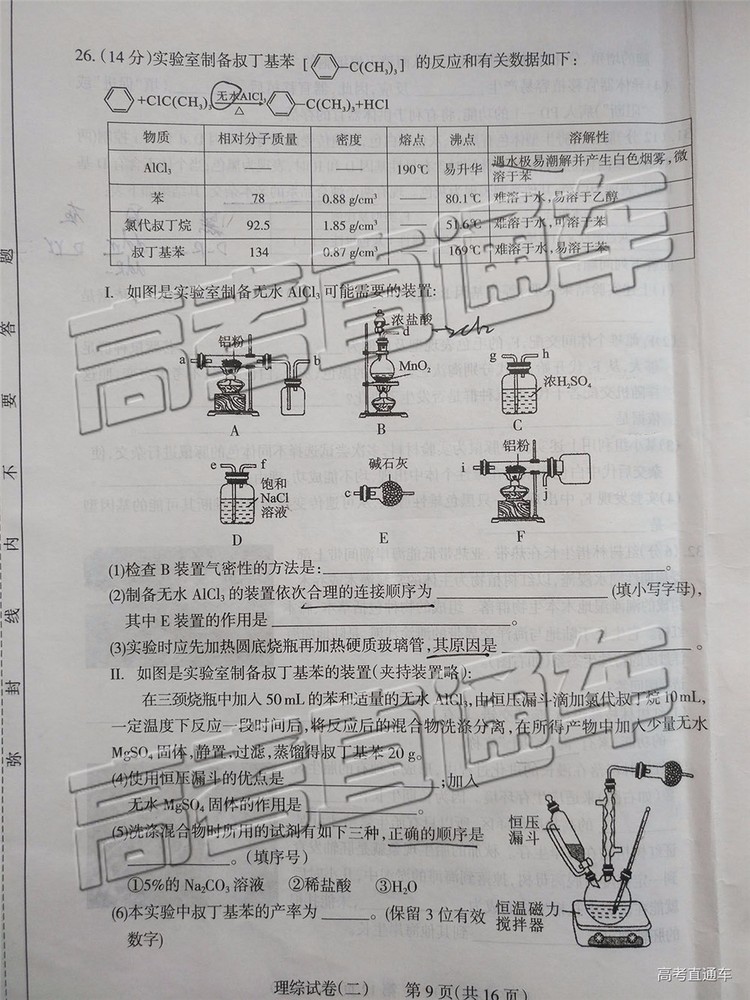 26.(14分)实验室制备叔丁基苯[ —C(CH₃)₃]的反应和有关数据如下:
+ClC(CH₃)₃ 无水AlCl₃ △ —C(CH₃)₃+HCl
物质 相对分子质量 密度 熔点 沸点 溶解性
AlCl₃ —— —— 190℃ 易升华 遇水极易潮解并产生白色烟雾,微溶于苯
苯 78 0.88 g/cm³ —— 80.1℃ 难溶于水,易溶于乙醇
氯代叔丁烷 92.5 1.85 g/cm³ 51.6℃ 难溶于水,可溶于苯
叔丁基苯 134 0.87 g/cm³ 169℃ 难溶于水,易溶于苯
I. 如图是实验室制备无水 AlCl₃ 可能需要的装置:
铝粉 a b A
浓盐酸 d MnO₂ B
g h 浓H₂SO₄ C
e f 饱和NaCl溶液 D
碱石灰 c E
铝粉 i j F
(1)检查 B 装置气密性的方法是:。
(2)制备无水 AlCl₃ 的装置依次合理的连接顺序为(填小写字母),
其中 E 装置的作用是。
(3)实验时应先加热圆底烧瓶再加热硬质玻璃管,其原因是。
II. 如图是实验室制备叔丁基苯的装置(夹持装置略):
在三颈烧瓶中加入 50 mL 的苯和适量的无水 AlCl₃,由恒压漏斗滴加氯代叔丁烷 10 mL,
一定温度下反应一段时间后,将反应后的混合物洗涤分离,在所得产物中加入少量无水
MgSO₄ 固体,静置,过滤,蒸馏得叔丁基苯 20 g。
(4)使用恒压漏斗的优点是;加入
无水 MgSO₄ 固体的作用是。
(5)洗涤混合物时所用的试剂有如下三种,正确的顺序是
。(填序号)
①5%的 Na₂CO₃ 溶液 ②稀盐酸 ③H₂O
(6)本实验中叔丁基苯的产率为。(保留 3 位有效
数字)
恒压漏斗
恒温磁力搅拌器
理综试卷(二) 第 9 页(共 16 页)
弥 封 线 内 不 要 答 题
高考直通车
高考直通车
高考直通车